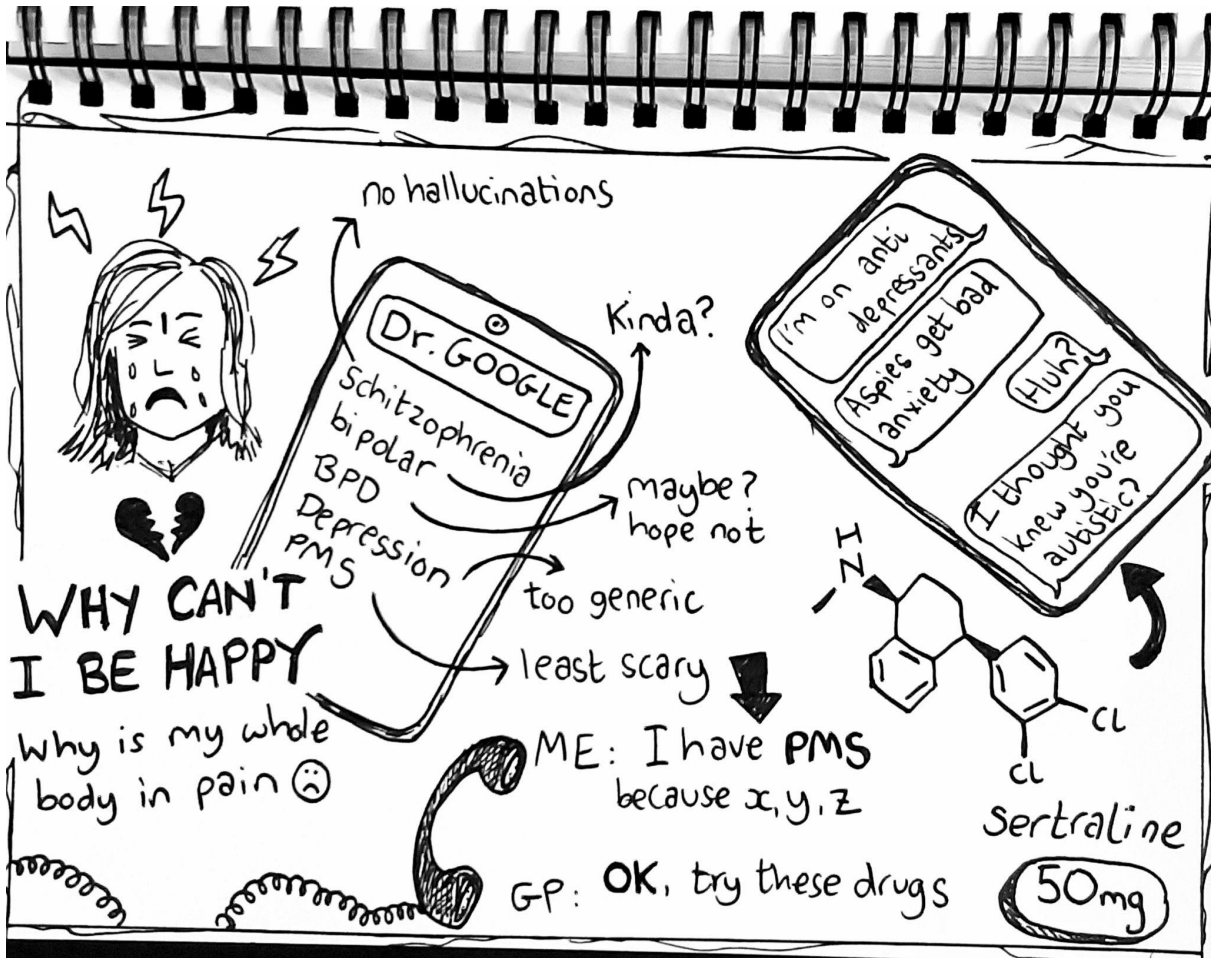 no hallucinations
Dr. GOOGLE
Schitzophrenia
bipolar
BPD
Depression
PMS
Kinda?
maybe?
hope not
too generic
least scary
WHY CAN'T
I BE HAPPY
Why is my whole
body in pain
ME: I have PMS
because x, y, z
GP: OK, try these drugs
I'm on anti
depressants
Aspies get bad
anxiety
Huh?
I thought you
knew you're
autistic?
H
N
Cl
Cl
Sertraline
50mg